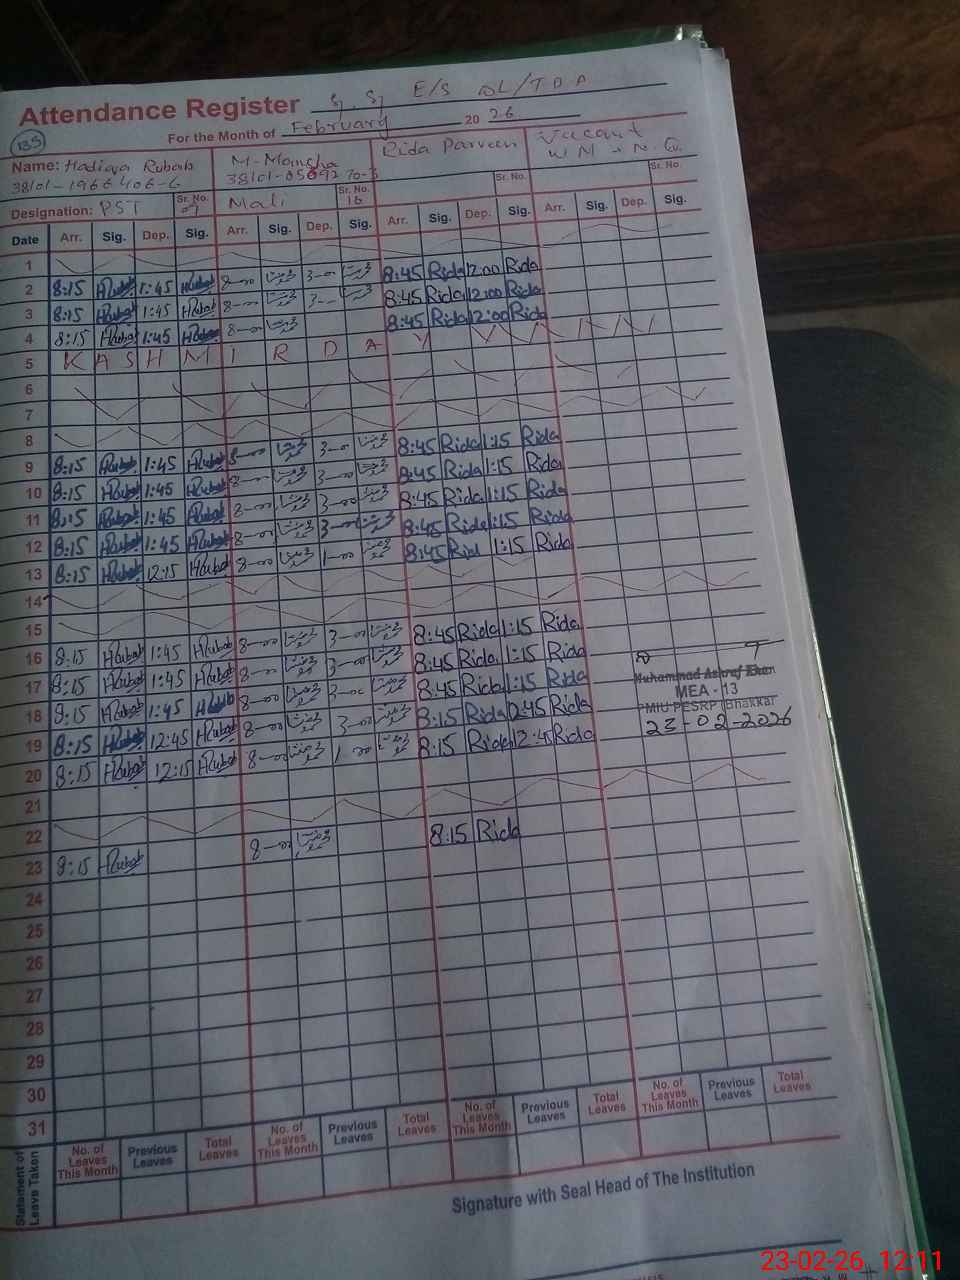 Attendance Register E/S DL/TDA
For the Month of February 20 26
135
Name: Hadiqa Rubab M-Mansha Rida Parveen Vacant
38101-1966406-6
Sr. No. Sr. No.
Designation: PST Sr. No. 09 Mali Sr. No. 16
Date Arr. Sig. Dep. Sig. Arr. Sig. Dep. Sig. Arr. Sig. Dep. Sig. Arr. Sig. Dep. Sig.
1
2 8:15 HRubab 1:45 HRubab 8-00 3-00 8:45 Rida 12:00 Rida
3 8:15 HRubab 1:45 HRubab 8-00 3-- 8:45 Rida 12:00 Rida
4 8:15 HRubab 1:45 HRubab 8-00 8:45 Rida 12:00 Rida
5 K A S H M I R D A Y
6
7
8
9 8:15 HRubab 1:45 HRubab 8-00 3-00 8:45 Rida 1:15 Rida
10 8:15 HRubab 1:45 HRubab 8-00 3-00 8:45 Rida 1:15 Rida
11 8:15 HRubab 1:45 HRubab 8-00 3-00 8:45 Rida 1:15 Rida
12 8:15 HRubab 1:45 HRubab 8-00 3-00 8:45 Rida 1:15 Rida
13 8:15 HRubab 12:15 HRubab 8-00 1-00 8:45 Rida 1:15 Rida
14
15
16 8:15 HRubab 1:45 HRubab 8-00 3-00 8:45 Rida 1:15 Rida
17 8:15 HRubab 1:45 HRubab 8-00 3-00 8:45 Rida 1:15 Rida
18 8:15 HRubab 1:45 HRubab 8-00 3-00 8:45 Rida 1:15 Rida
19 8:15 HRubab 12:45 HRubab 8-00 3-00 8:15 Rida 12:45 Rida
20 8:15 HRubab 12:15 HRubab 8-00 1-00 8:15 Rida 12:45 Rida
Muhammad Ashraf Khan
MEA - 13
PMIU PESRP Bhakkar
23-02-2026
21
22
23 8:15 HRubab 8-00 8:15 Rida
24
25
26
27
28
29
30
31
Statement of Leave Taken
No. of Leaves This Month Previous Leaves Total Leaves No. of Leaves This Month Previous Leaves Total Leaves No. of Leaves This Month Previous Leaves Total Leaves No. of Leaves This Month Previous Leaves Total Leaves
Signature with Seal Head of The Institution
23-02-26 12:11